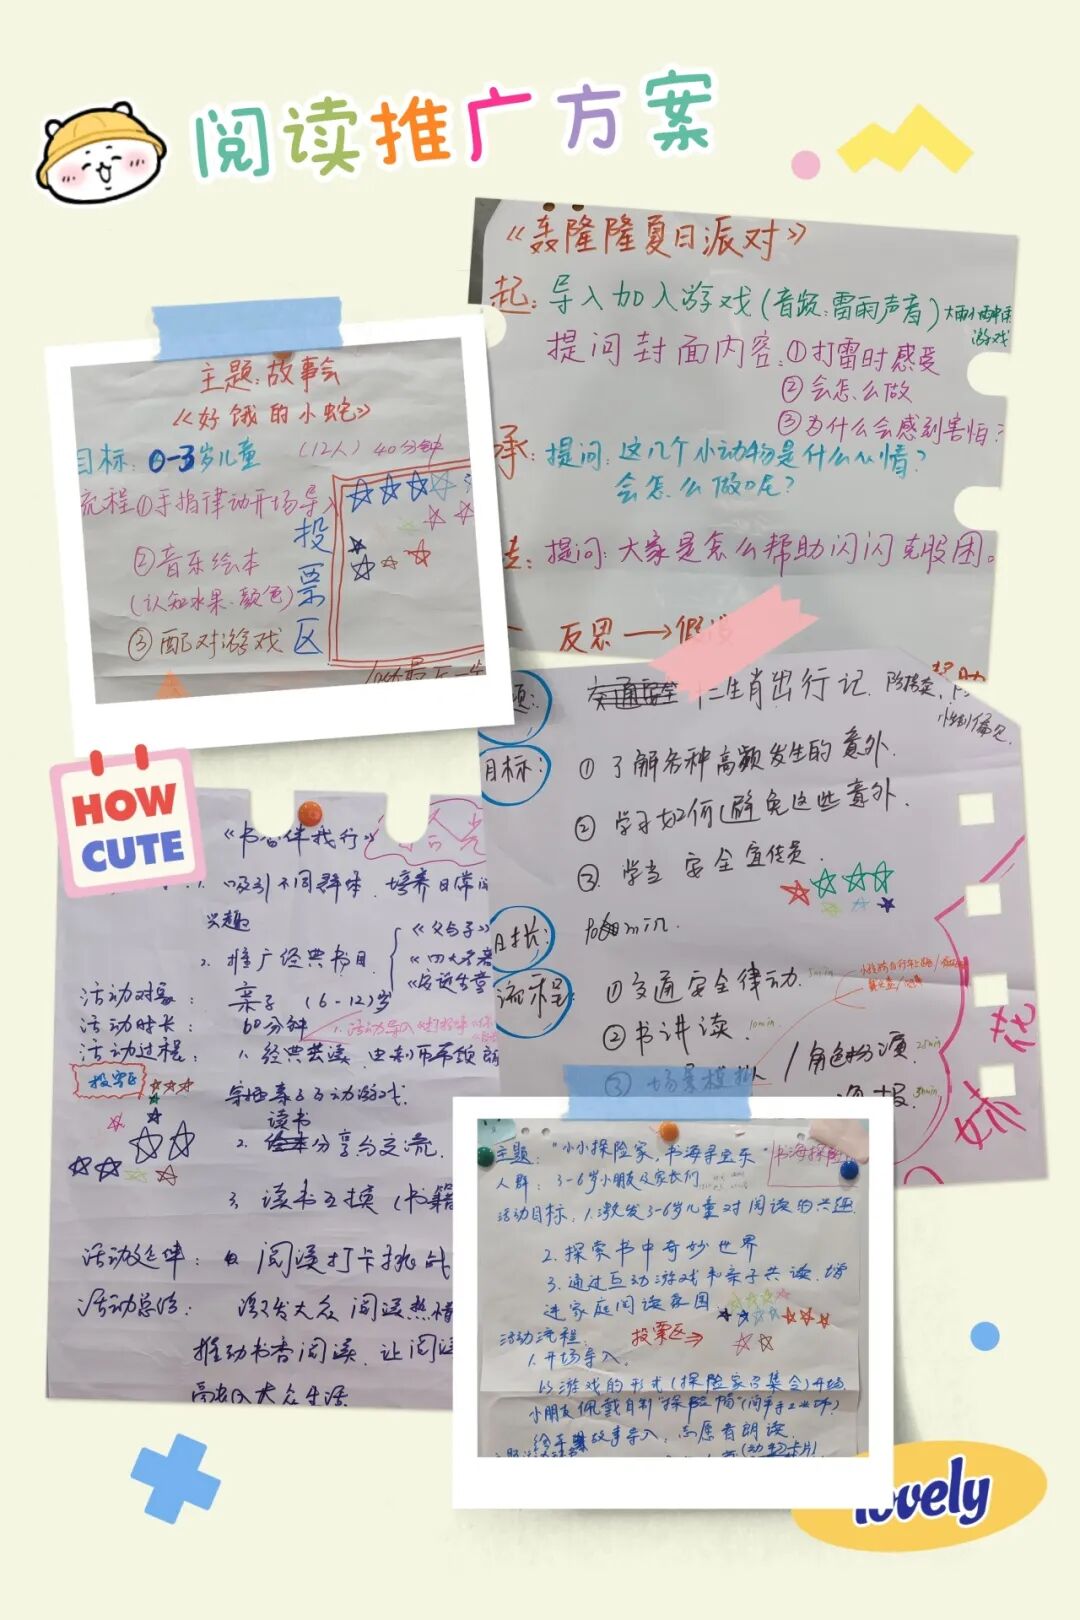 阅读推广方案
《轰隆隆夏日派对》
起:导入加入游戏(音频:雷雨声音)
游戏
提问封面内容:①打雷时感受
②会怎么做
③为什么会感到害怕?
承:提问:这几个小动物是什么心情?
会怎么做呢?
提问:大家是怎么帮助闪闪克服困。
反思→假设
主题:故事会
《好饿的小蛇》
目标:0-3岁儿童 (12人) 40分钟
流程①手指律动开场导入
②音乐绘本
(认知水果.颜色)
③配对游戏
投票区
十二生肖出行记.
目标:
①了解各种高频发生的意外.
②学习如何避免这些意外.
③.学当安全宣传员.
时长:
流程:
①交通安全律动. 5min
②书讲读. 10min
③场景模拟/角色扮演. 25min
HOW
CUTE
《书香伴我行》
1.吸引不同群体.培养日常阅
兴趣
2.推广经典书目.
《父与子》
《四大名著
活动对象: 亲子 (6-12)岁
活动时长: 60分钟
活动过程: 1.经典共读,由
导语亲子互动游戏.
投票区
读书
2.分享与交流.
3.读书互换(书籍
活动延伸: 阅读打卡挑战
活动总结: 激发大众阅读热情
推动书香阅读.让阅读
主题:"小小探险家,书海寻宝乐" 书海探险
人群:3-6岁小朋友及家长们
活动目标:1.激发3-6岁儿童对阅读的兴趣.
2.探索书中奇妙世界
3.通过互动游戏和亲子共读.增
进家庭阅读氛围.
活动流程. 投票区⇒
1.开场导入.
以游戏的形式(探险家召集令)开场.
小朋友佩戴自制"探险帽"
绘本故事导入,志愿者朗读.
lovely